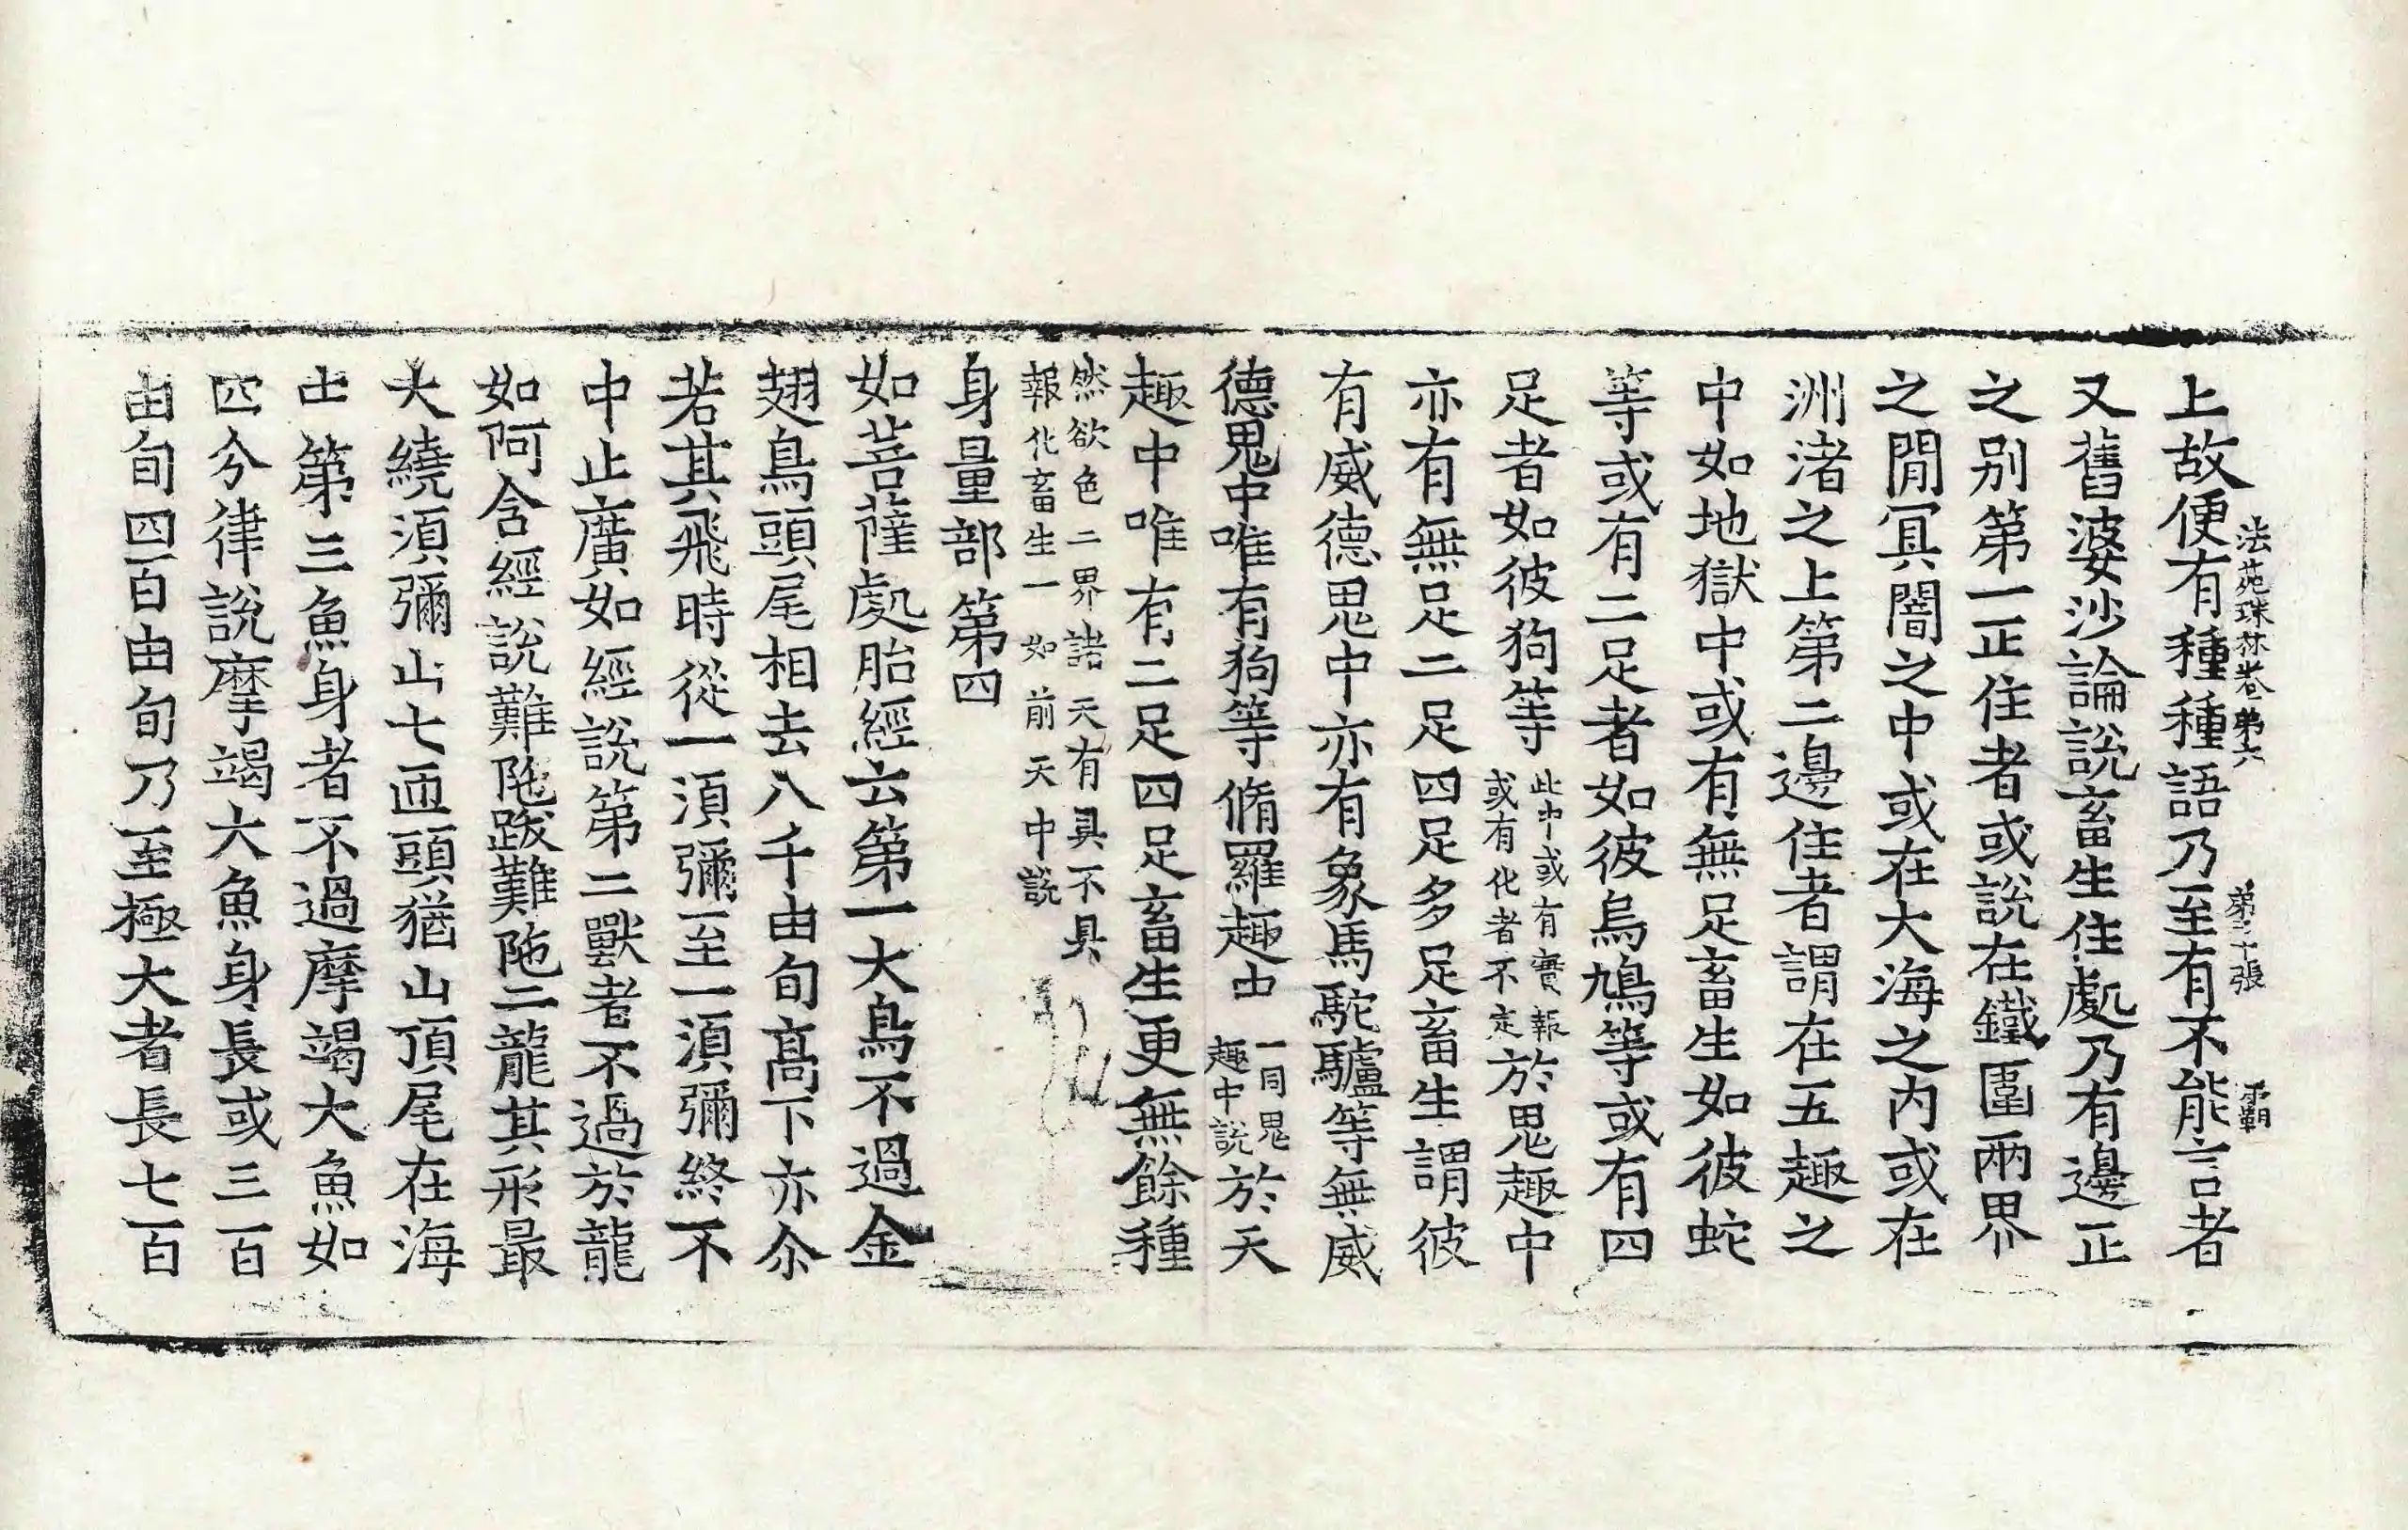 法苑珠林卷第六 第二十張 覇
上故便有種種語乃至有不能言者
又舊婆沙論說畜生住處乃有邊正
之別第一正住者或說在鐵圍兩界
之間冥闇之中或在大海之內或在
洲渚之上第二邊住者謂在五趣之
中如地獄中或有無足畜生如彼蛇
等或有二足者如彼烏鳩等或有四
足者如彼狗等此中或有實報或有化者不定於鬼趣中
亦有無足二足四足多足畜生謂彼
有威德鬼中亦有象馬駝驢等無威
德鬼中唯有狗等脩羅趣中一同鬼趣中說於天
趣中唯有二足四足畜生更無餘種
然欲色二界諸天有具不具
報化畜生一如前天中說
身量部第四
如菩薩處胎經云第一大鳥不過金
翅鳥頭尾相去八千由旬高下亦尒
若其飛時從一須彌至一須彌終不
中止廣如經說第二獸者不過於龍
如阿含經說難陁跋難陁二龍其形最
大繞須彌山七匝頭猶山頂尾在海
中第三魚身者不過摩竭大魚如
四分律說摩竭大魚身長或三百
由旬四百由旬乃至極大者長七百